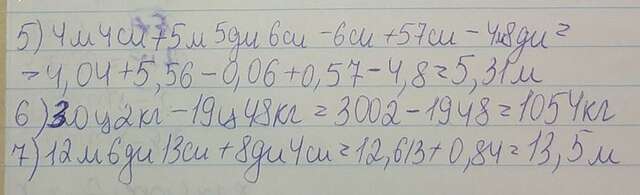 5) 4м 4см + 5м 5дм 6см - 6см + 57см - 4м8дм =
= 4,04 + 5,56 - 0,06 + 0,57 - 4,8 = 5,31м
6) 30ц 2кг - 19ц 48кг = 3002 - 1948 = 1054кг
7) 12м 6дм 13см + 8дм 4см = 12,613 + 0,84 = 13,5м